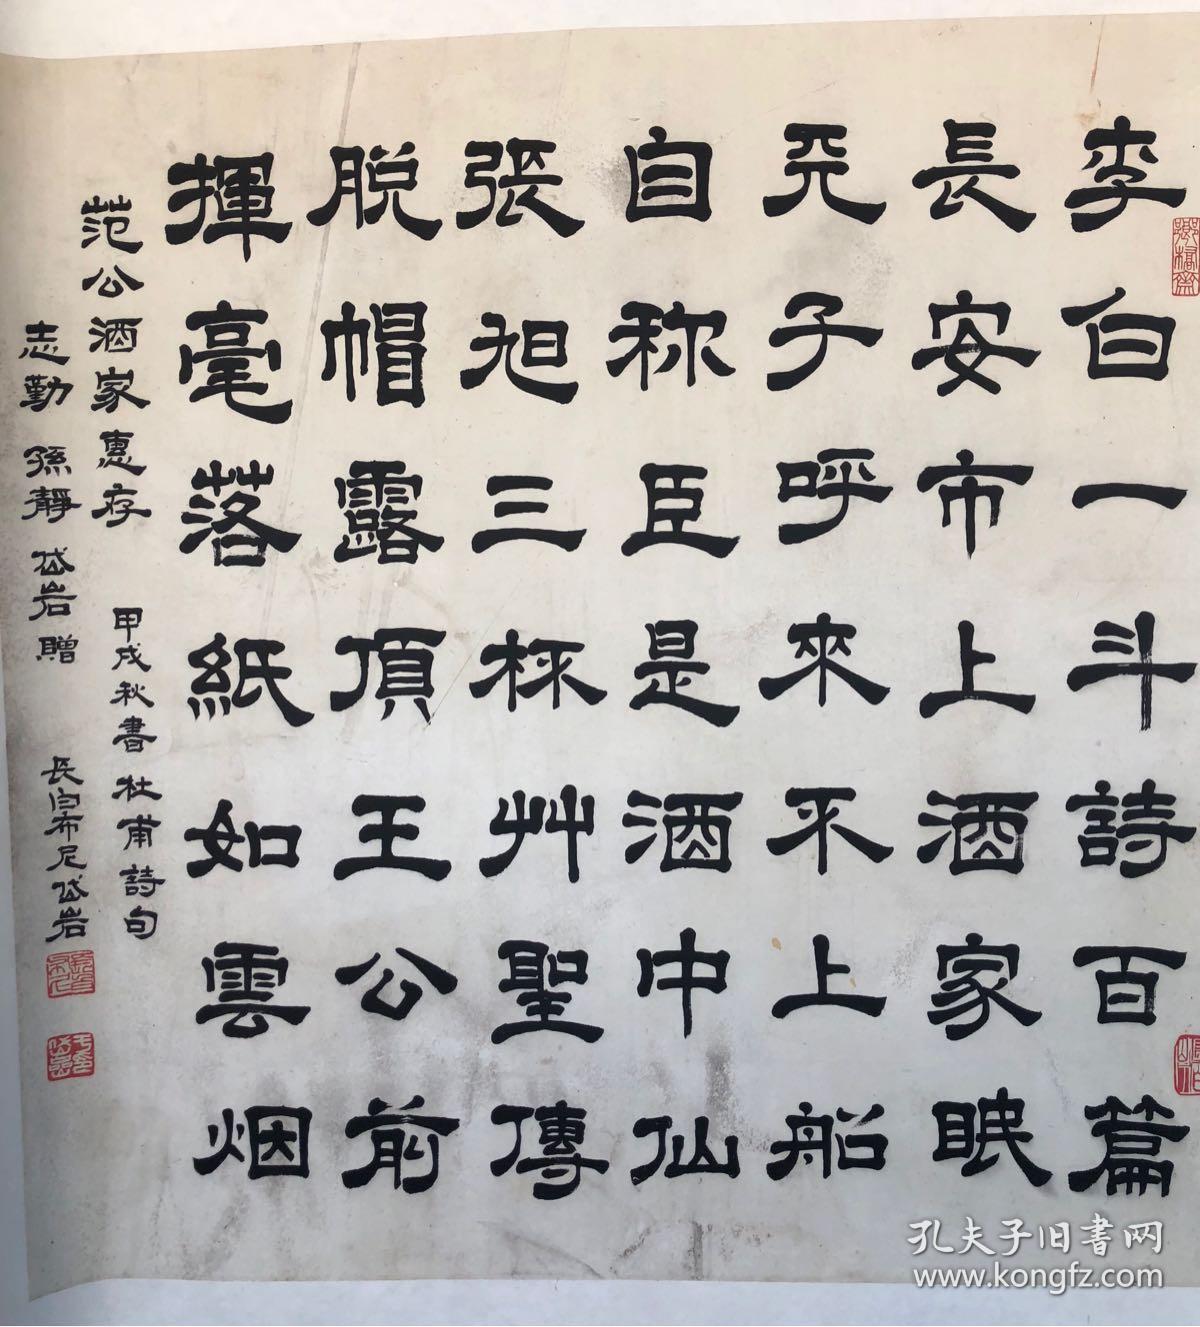 李白一斗詩百篇
長安市上酒家眠
天子呼來不上船
自称臣是酒中仙
張旭三杯艸聖傳
脱帽露頂王公前
揮毫落紙如雲烟
甲戌秋書杜甫詩句
范公酒家惠存
志勤 孫靜 岱岩贈
長白布尼岱岩
孔夫子旧书网
www.kongfz.com